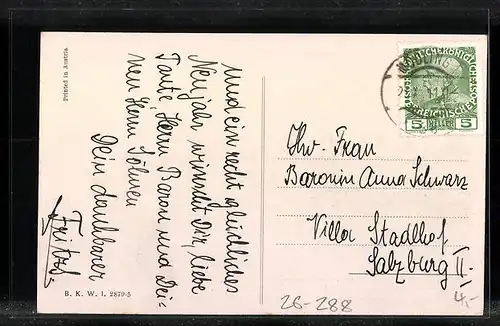 und ein recht glückliches
Neujahr wünscht Dir, liebe
Tante, Herrn Baron und Dei-
nen Herrn Söhnen
Dein dankbarer
Fritzl.
Printed in Austria
B. K. W. I. 2879-5
MÖDLING
5 HELLER 5
Hw. Frau
Baronin Anna Schwarz
Villa Stadlhof
Salzburg II.
26-288
4,-